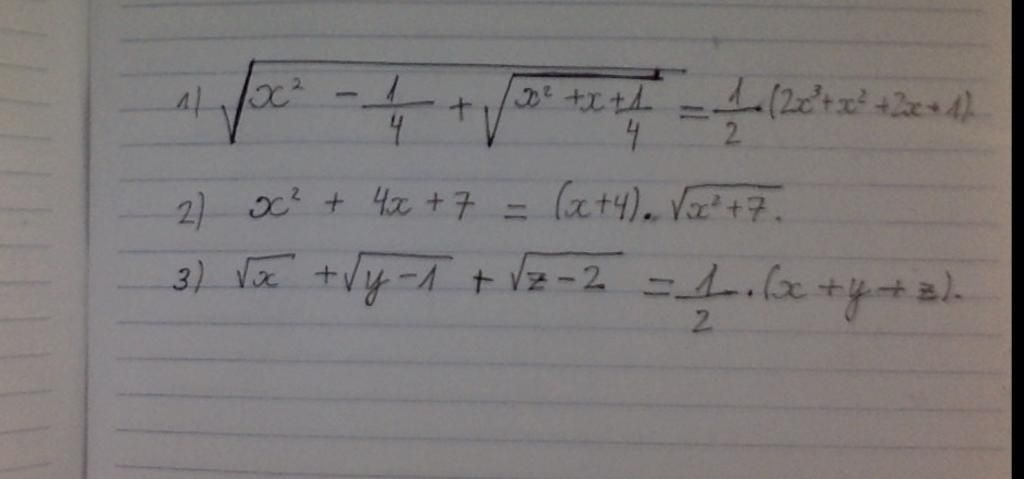 1) √(x² - 1/4 + √(x² + x + 1/4)) = 1/2 . (2x³ + x² + 2x + 1).
2) x² + 4x + 7 = (x + 4) . √(x² + 7).
3) √x + √(y - 1) + √(z - 2) = 1/2 . (x + y + z).